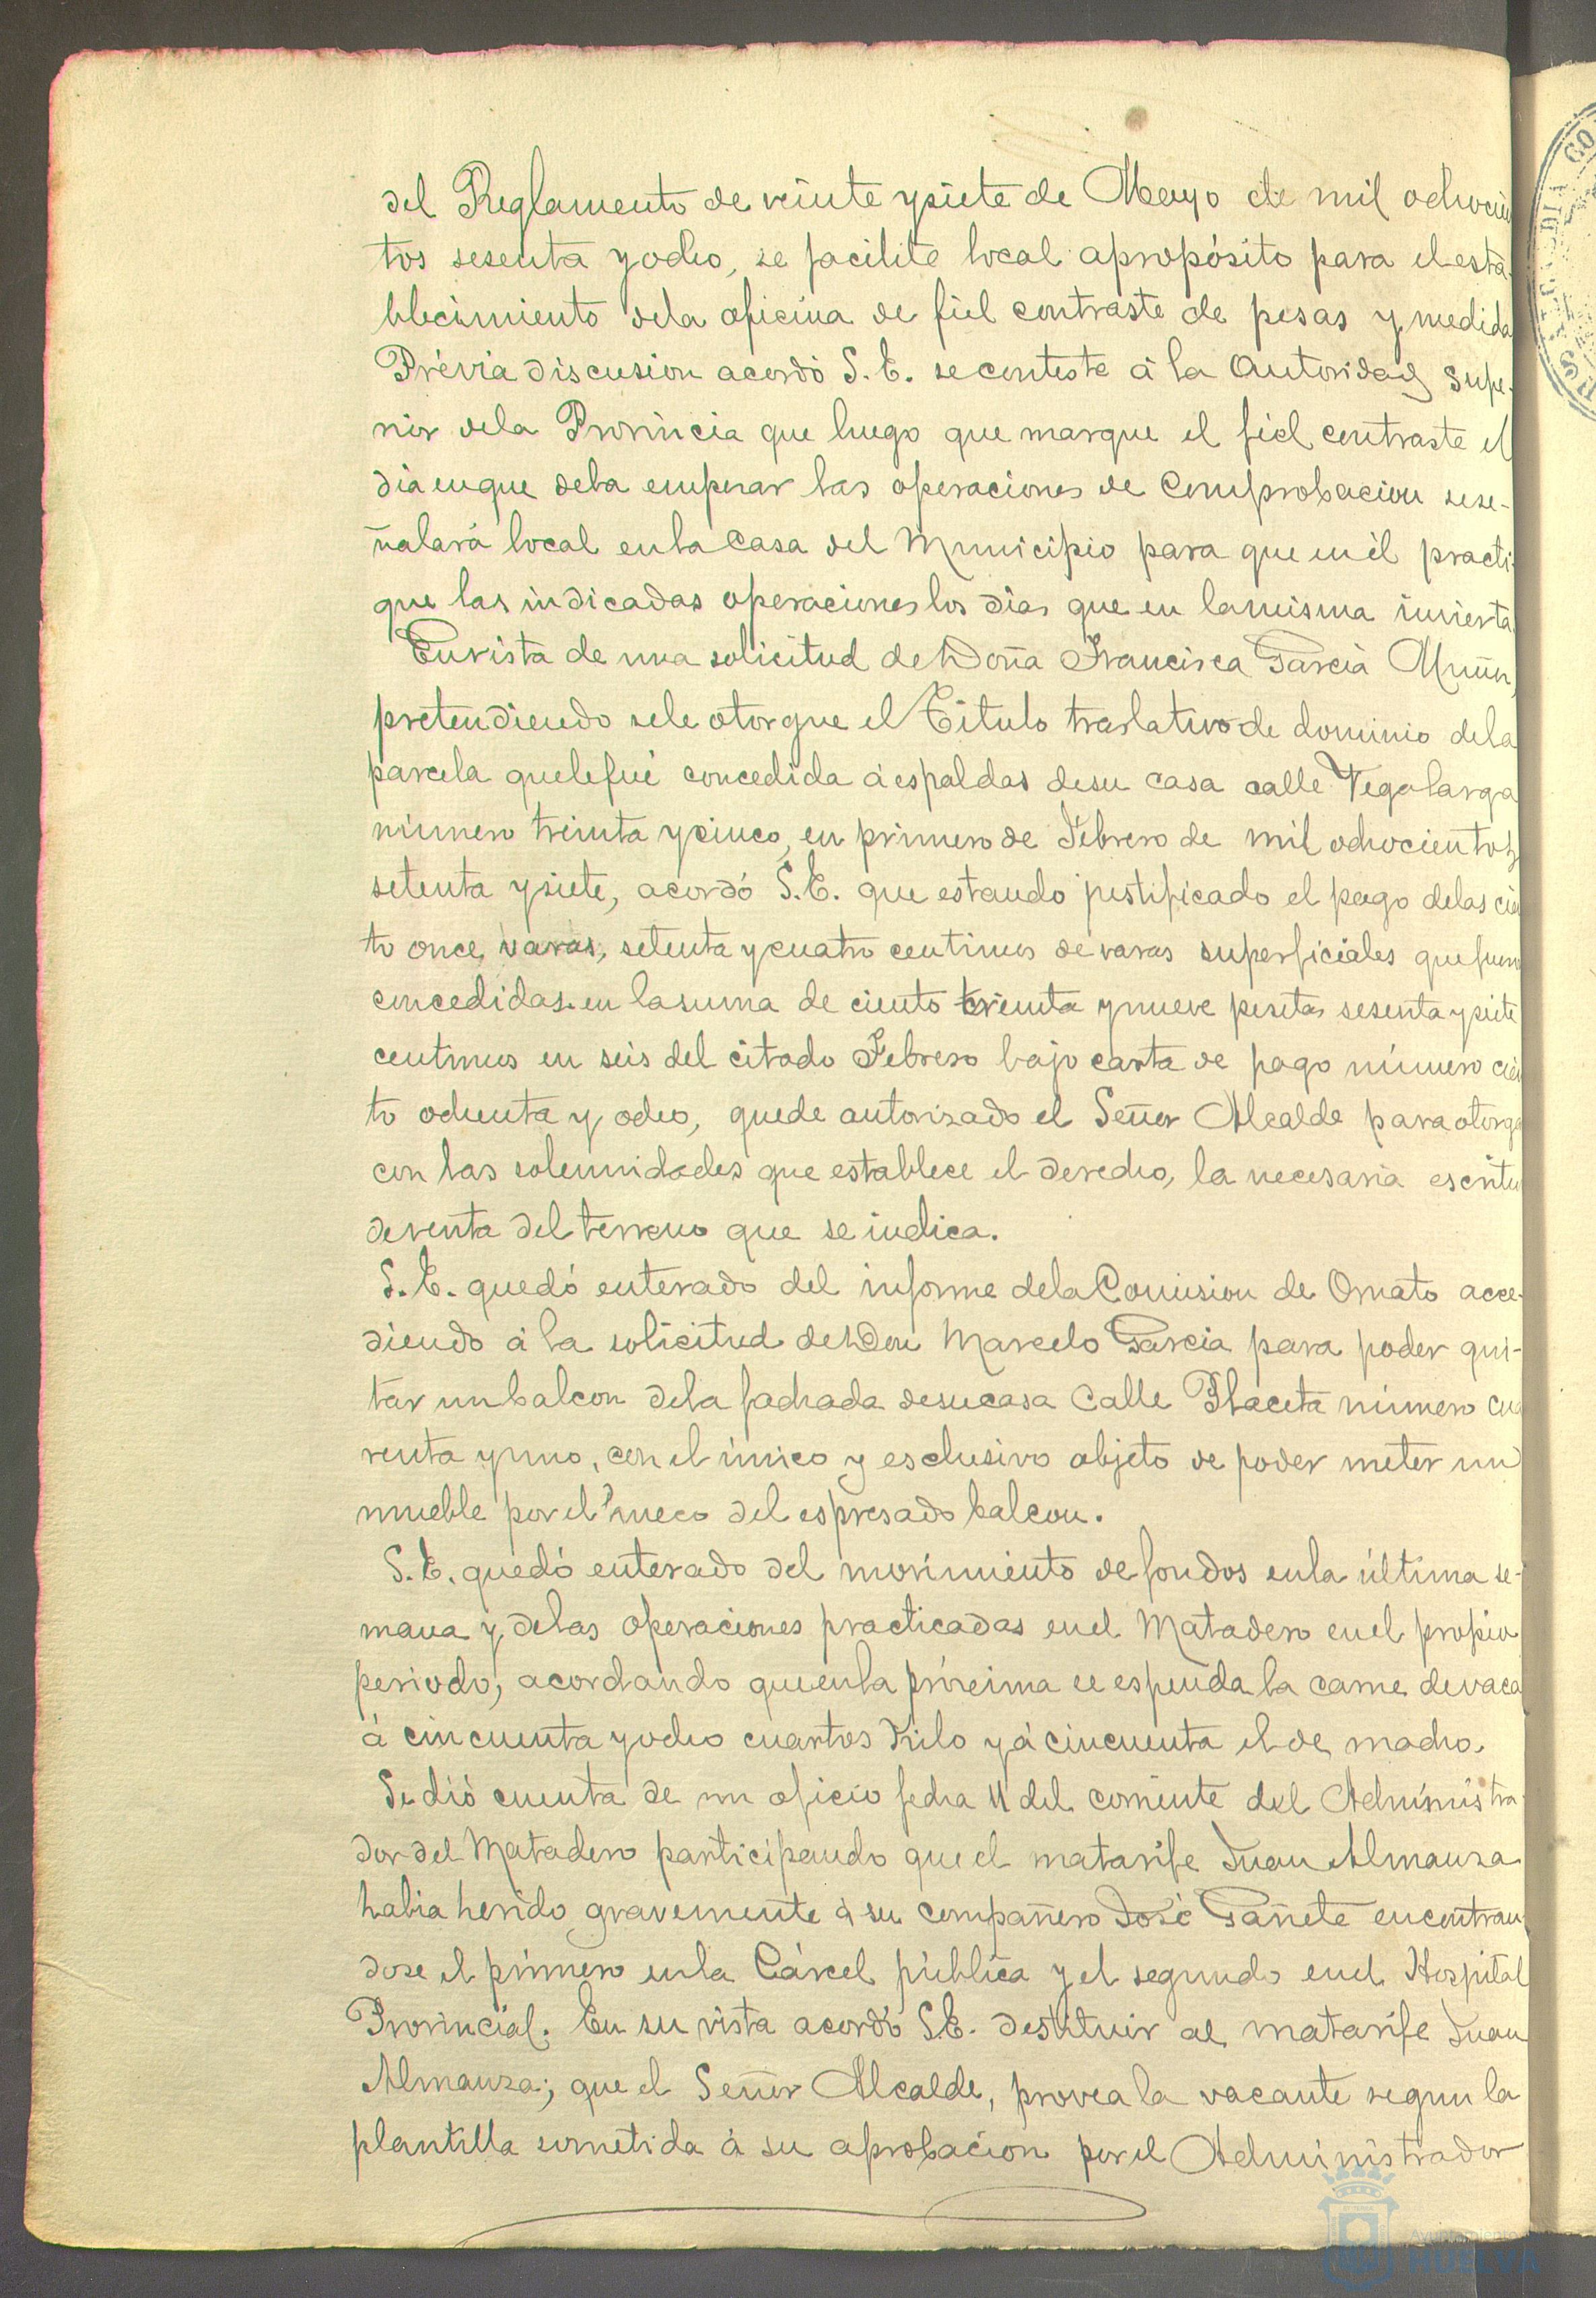 del Reglamento de veinte y siete de Mayo de mil ochocien
tos sesenta y ocho, se facilite local apropósito para el esta-
blecimiento dela oficina de fiel contraste de pesas y medida
Prévia discusion acordó S. E. se conteste á la Autoridad Supe-
rior dela Provincia que luego que marque el fiel contraste el
dia enque deba empezar las operaciones de Comprobacion sese-
ñalará local enla Casa del Municipio para que en él practi-
que las indicadas operaciones los dias que en lamisma invierta.
En vista de una solicitud de Doña Francisca Garcia Muñoz
pretendiendo sele otorgue el Título traslativo de dominio dela
parcela quele fué concedida á espaldas desu casa calle Vega larga
número treinta y cinco, en primero de Febrero de mil ochocientos
setenta y siete, acordó S. E. que estando justificado el pago delas cien
to once varas, setenta y cuatro centimos de varas superficiales que fueron
concedidas en la suma de ciento treinta y nueve pesetas sesenta y siete
centimos en seis del citado Febrero bajo carta de pago número cien
to ochenta y ocho, quede autorizado el Señor Alcalde para otorga
con las solemnidades que establece el derecho, la necesaria escritu
de venta del terreno que se indica.
S. E. quedó enterado del informe dela Comision de Ornato acce-
diendo á la solicitud de Don Marcelo Garcia para poder qui-
tar un balcon dela fachada desu casa Calle Placeta número cua
renta y uno, con el único y esclusivo objeto de poder meter un
mueble por el hueco del espresado balcon.
S. E. quedó enterado del movimiento de fondos enla última se-
mana y delas operaciones practicadas enel Matadero enel propio
periodo, acordando que enla próxima se espenda la carne de vaca
á cincuenta y ocho cuartos Kilo y á cincuenta el de macho.
Se dió cuenta de un oficio fecha 11 del corriente del Administra
dor del Matadero participando que el matarife Juan Almanza
habia herido gravemente á su compañero José Gañete encontran
dose el primero enla Cárcel pública y el segundo enel Hospital
Provincial. En su vista acordó S.E. destituir al matarife Juan
Almanza; que el Señor Alcalde, provea la vacante segun la
plantilla sometida á su aprobacion por el Administrador
Ayuntamiento
HUELVA